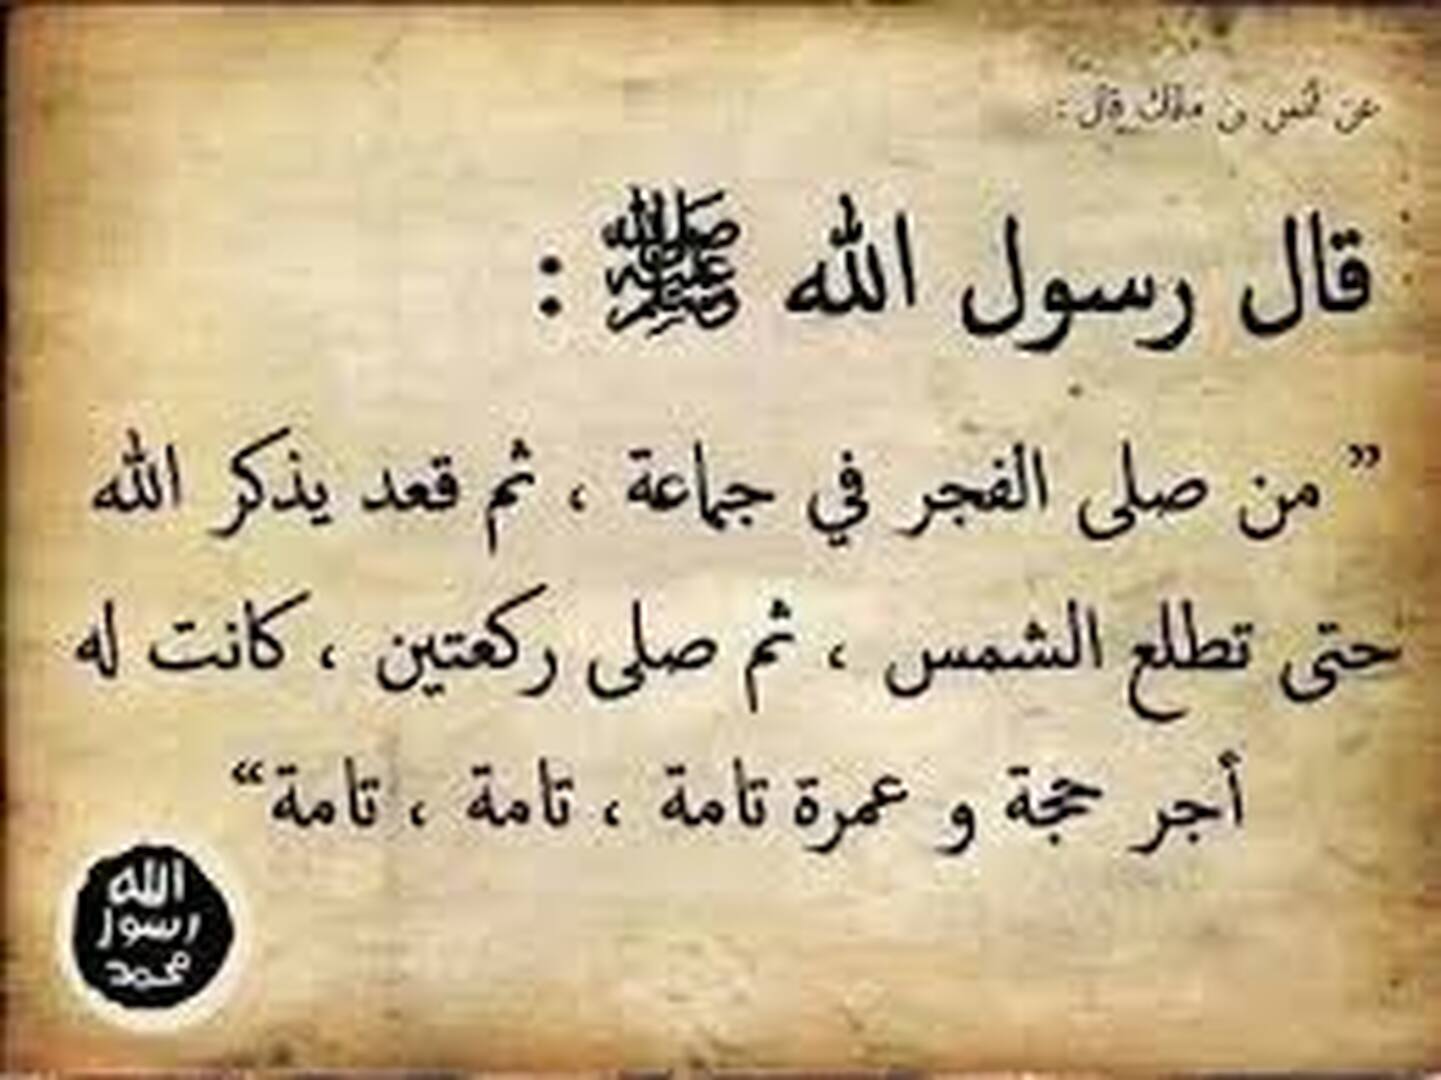 عن أنس بن مالك قال :
قال رسول الله ﷺ :
” من صلى الفجر في جماعة ، ثم قعد يذكر الله
حتى تطلع الشمس ، ثم صلى ركعتين ، كانت له
أجر حجة و عمرة تامة ، تامة ، تامة “
الله
رسول
محمد